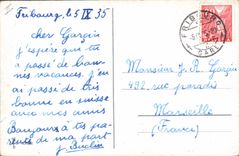 Fribourg, le 5 IX 35
cher Garzin
j'espère que tu
a passé de bon-
nes vacances. J'en
ai passé de très
bonne en suisse
avec mes amis
Bonjours à tes pa-
rents de ma part
J.
Monsieur J. R. Garzin
492, rue paradis
Marseille
(France)
FRIBOURG